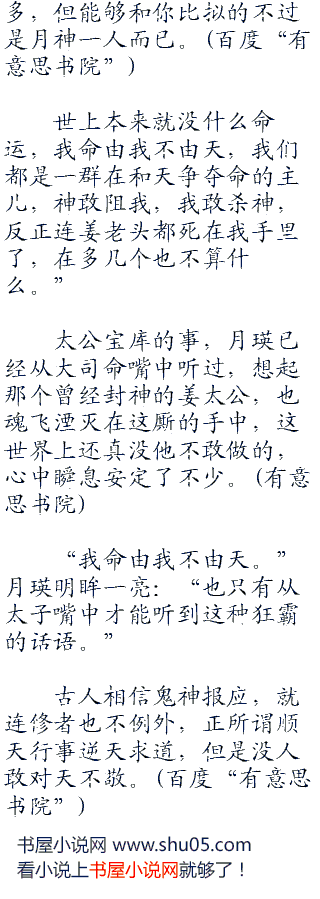 多，但能够和你比拟的不过
是月神一人而已。(百度“有
意思书院”)
世上本来就没什么命
运，我命由我不由天，我们
都是一群在和天争夺命的主
儿，神敢阻我，我敢杀神，
反正连姜老头都死在我手里
了，在多几个也不算什
么。”
太公宝库的事，月瑛已
经从大司命嘴中听过，想起
那个曾经封神的姜太公，也
魂飞湮灭在这厮的手中，这
世界上还真没他不敢做的，
心中瞬息安定了不少。(有意
思书院)
“我命由我不由天。”
月瑛明眸一亮：“也只有从
太子嘴中才能听到这种狂霸
的话语。”
古人相信鬼神报应，就
连修者也不例外，正所谓顺
天行事逆天求道，但是没人
敢对天不敬。(百度“有意思
书院”)
书屋小说网 www.shu05.com
看小说上书屋小说网就够了！